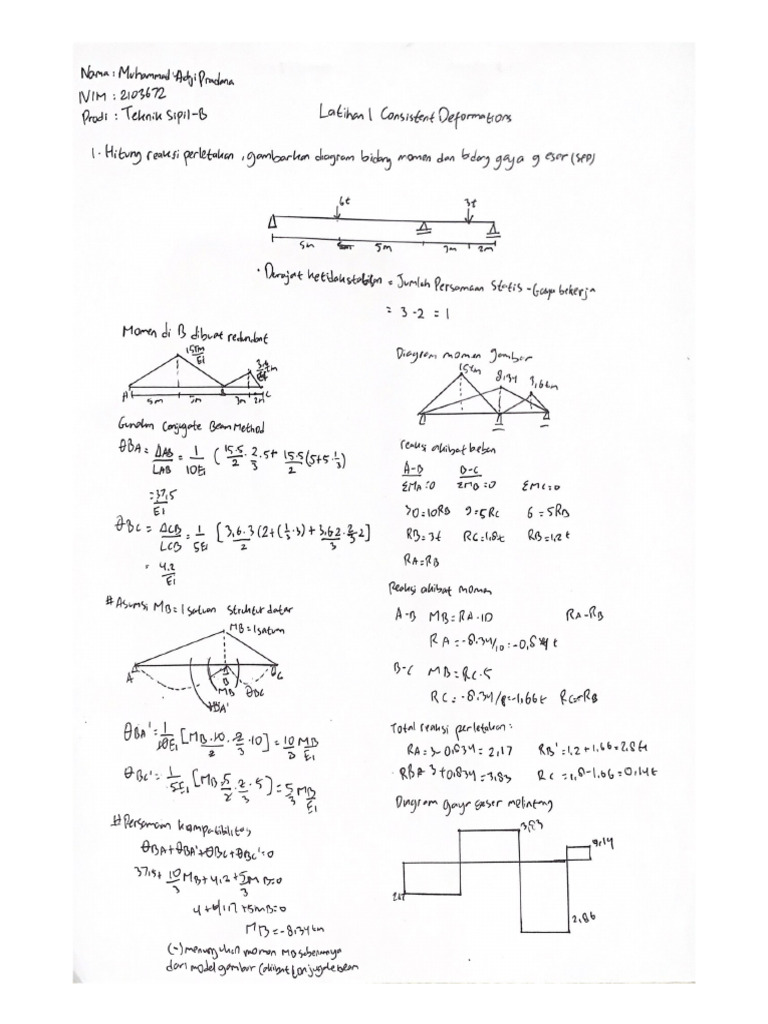 Nama : Muhammad Adji Pradana
NIM : 2103672
Prodi : Teknik Sipil-B
Latihan 1 Consistent Deformations
1. Hitung reaksi perletakan, gambarkan diagram bidang momen dan bidang gaya geser (SFD)
6t 3t
5m 5m 3m 2m
• Derajat ketidakstabilan = Jumlah Persamaan Statis - Gaya bekerja
= 3 - 2 = 1
Momen di B dibuat redundat
15tm/EI 3,6/EI tm
A B C
5m 5m 3m 2m
Gunakan Conjugate Beam Method
θBA = ΔAB/LAB = 1/10EI ( 15.5/2 . 2/3 . 5 + 15.5/2 (5+5.1/3)
= 37,5/EI
θBC = ΔCB/LCB = 1/5EI [ 3,6.3/2 (2+(1/3.3) + 3,6.2/3 . 2/3 . 2]
= 4.2/EI
# Asumsi MB = 1 satuan struktur datar
MB = 1 satuan
A B C
MB θBC
θBA'
θBA' = 1/10EI [MB.10/2 . 2/3 . 10] = 10/3 MB/EI
θBC' = 1/5EI [MB.5/2 . 2/3 . 5] = 5/3 MB/EI
# Persamaan kompatibilitas
θBA + θBA' + θBC + θBC' = 0
37,5 + 10/3 MB + 4,2 + 5/3 MB = 0
+ 5MB = 0
MB = -8.34 tm
(-) momen MB sebenarnya
dari model gambar (akibat conjugate beam
Diagram momen gambar
15tm 8.34 3,6tm
reaksi akibat beban
A-B B-C
ΣMA=0 ΣMB=0 ΣMC=0
30=10RB 9=5RC 6=5RB
RB=3t RC=1,8t RB=1,2t
RA=RB
Reaksi akibat momen
A-B MB=RA.10 RA-RB
RA=-8.34/10=-0,834 t
B-C MB=RC.5
RC=-8.34/5=-1,66t RC=RB
Total reaksi perletakan :
RA=3-0,834=2,17 RB'=1,2+1,66=2,86t
RBA 3+0,834=3,83 RC=1,8-1,66=0,14t
Diagram gaya geser melintang
3,83
0,14
2.17
2,86